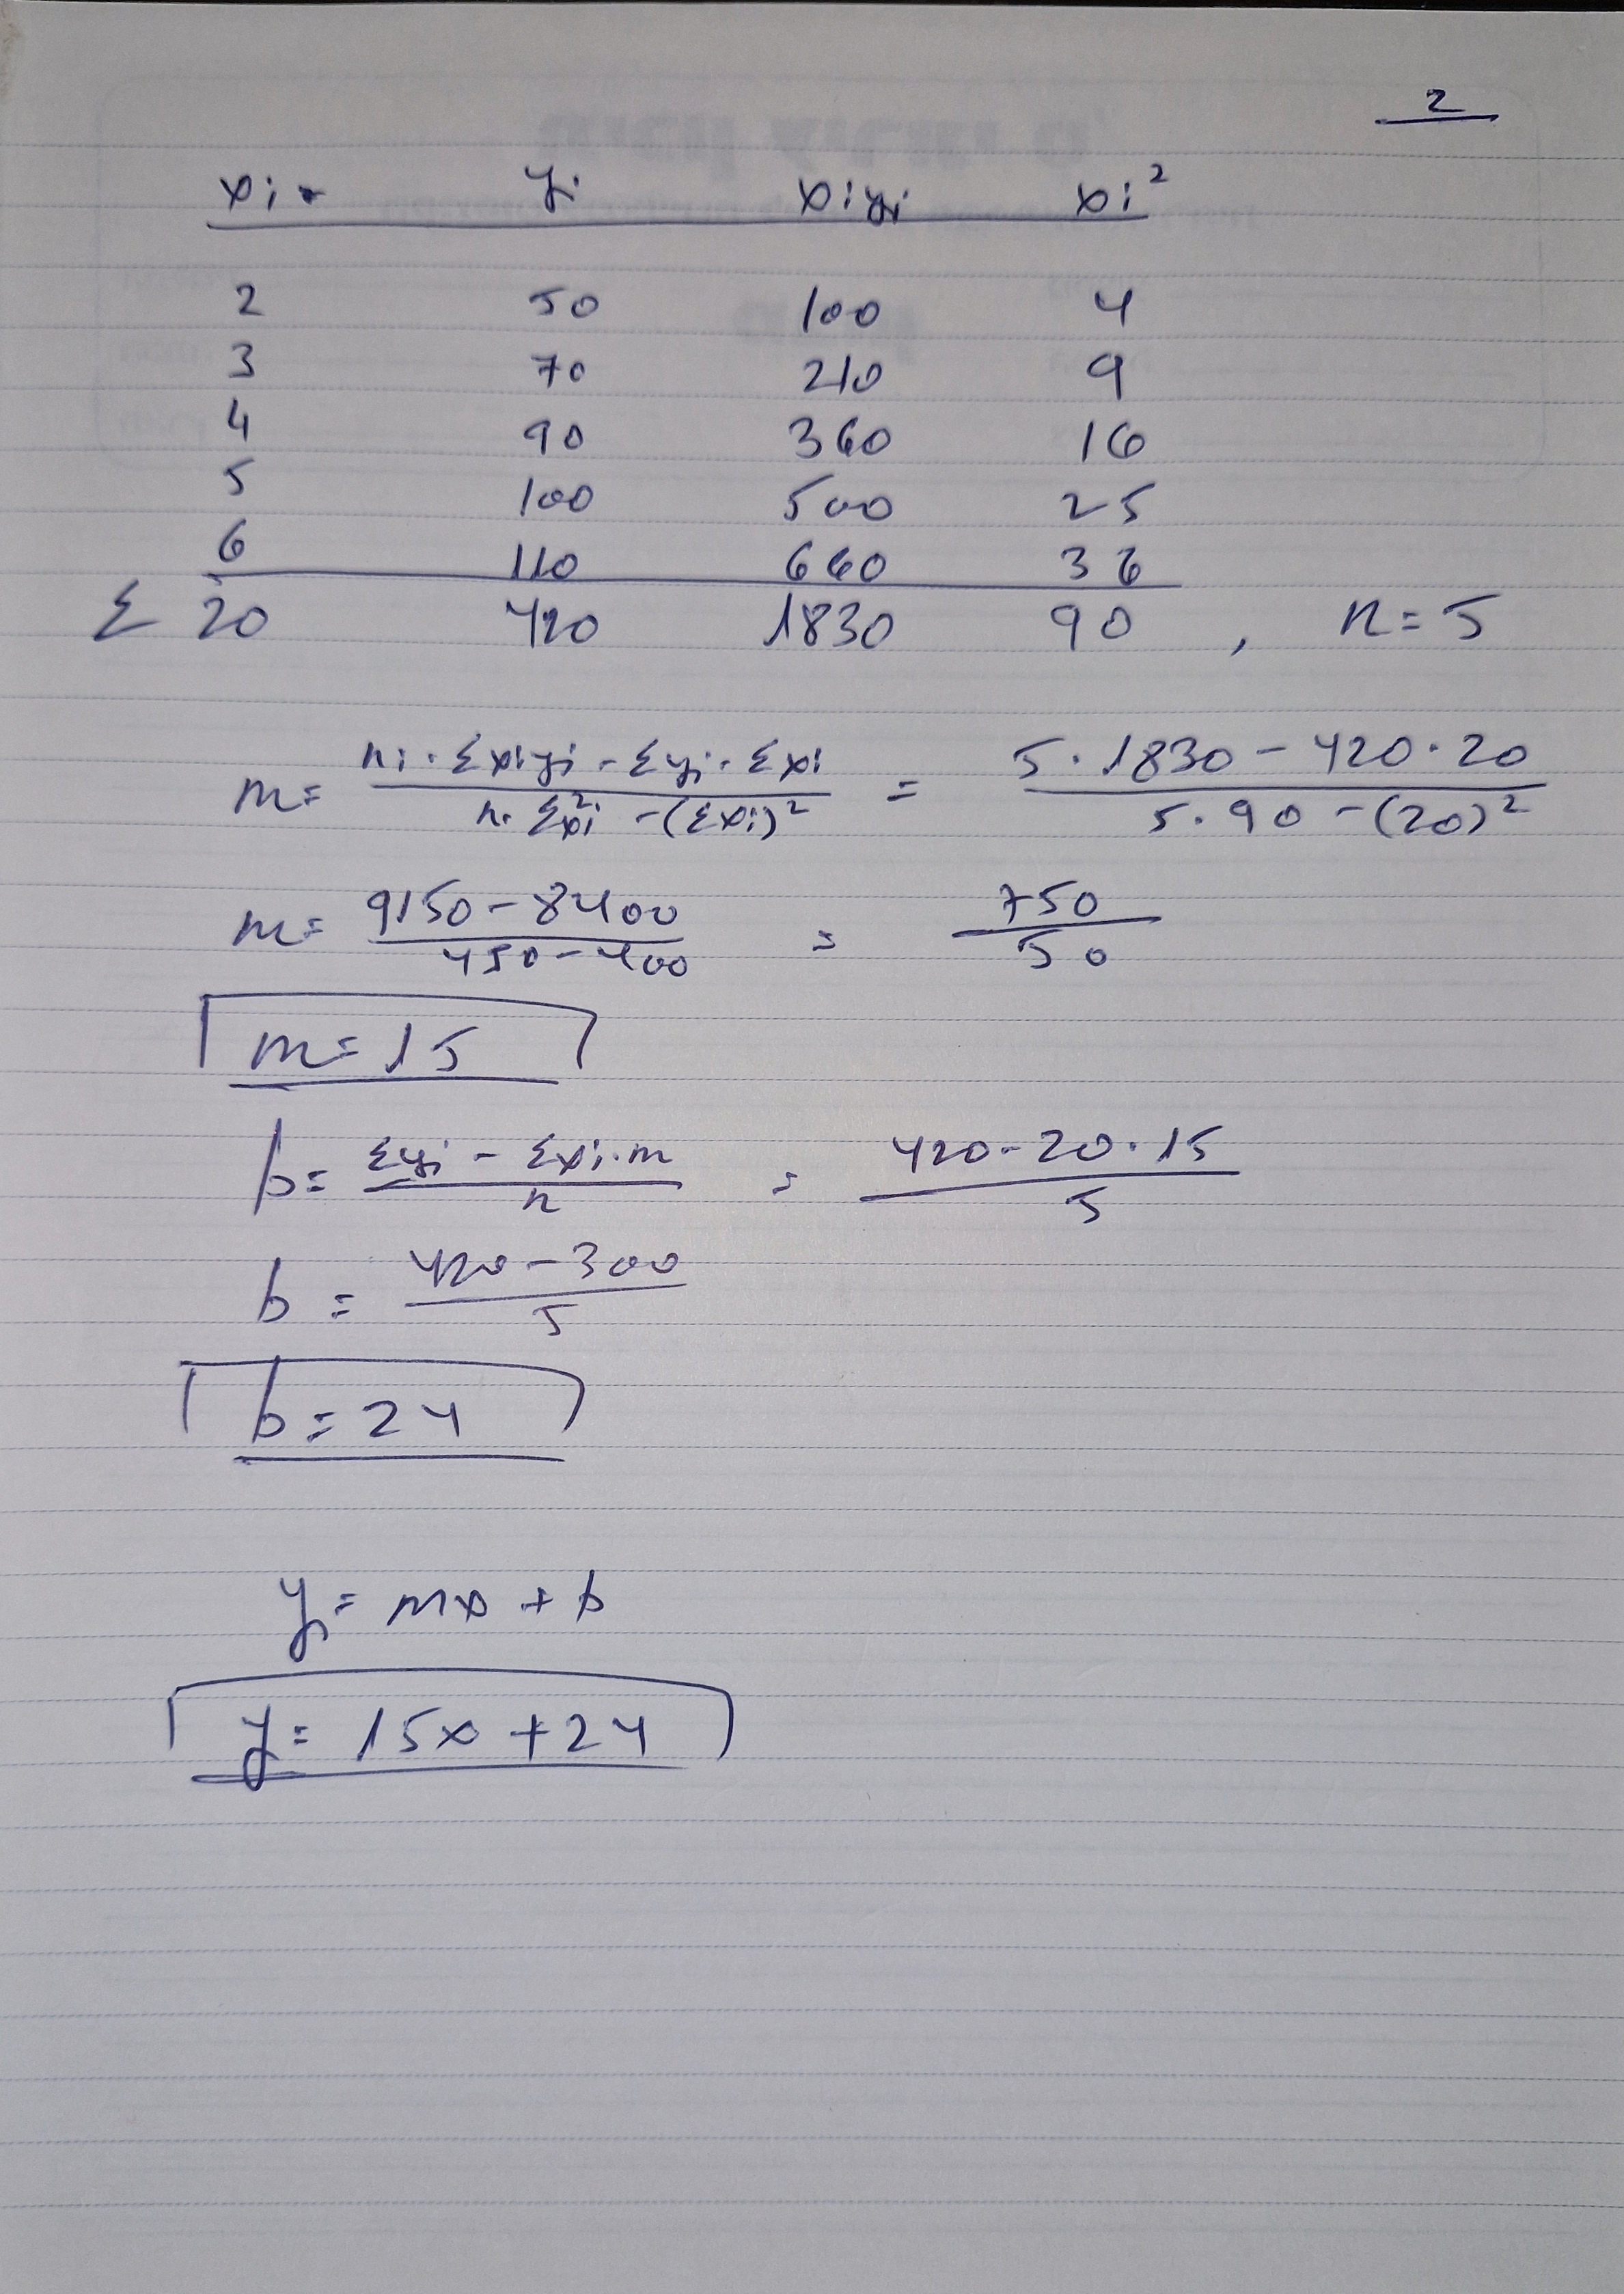 2
xi yi xiyi xi²
2 50 100 4
3 70 210 9
4 90 360 16
5 100 500 25
6 110 660 36
Σ 20 420 1830 90 , n=5
m= (ni·Σxiyi - Σyi·Σxi)/(n·Σxi² - (Σxi)²) = (5·1830 - 420·20)/(5·90 - (20)²)
m= (9150 - 8400)/(450 - 400) = 750/50
m=15
b= (Σyi - Σxi·m)/n = (420 - 20·15)/5
b= (420 - 300)/5
b=24
y= mx + b
y= 15x + 24